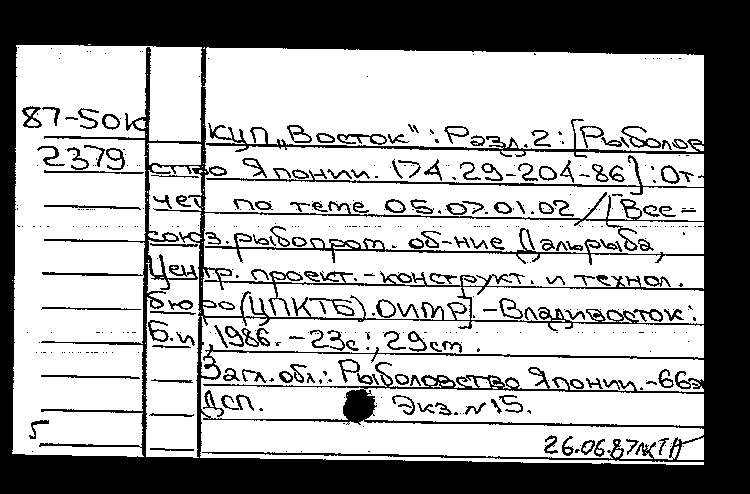 87-50К
КЦП „Восток“: Разд. 2: [Рыболов
2379
ство Японии. 174.29-204-86]: От-
чет по теме 05.07.01.02 / [Все-
союз. рыбопром. об-ние Дальрыба,
Центр. проект.-конструкт. и технол.
бюро (ЦПКТБ). ОИПИР] - Владивосток:
Б.и, 1986. - 23с!, 29см.
Загл. обл.: Рыболовство Японии. - 66э
ДСП. Экз. №15.
5
26.06.87